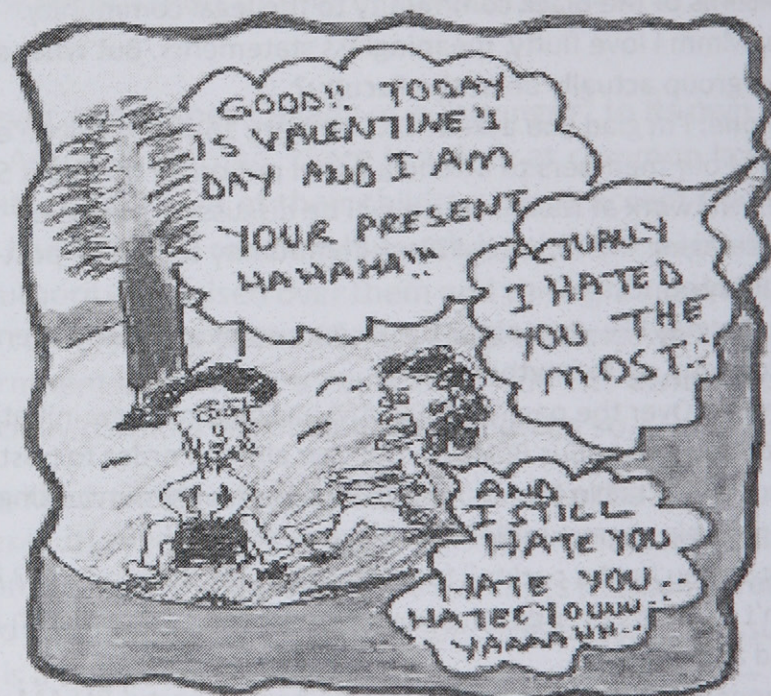 GOOD!! TODAY
IS VALENTINE'S
DAY AND I AM
YOUR PRESENT
HAHAHA!!!
ACTUALLY
I HATED
YOU THE
MOST!!
AND
I STILL
HATE YOU
HATE YOU..
HATEE YOUUU..
YAAAAHH..